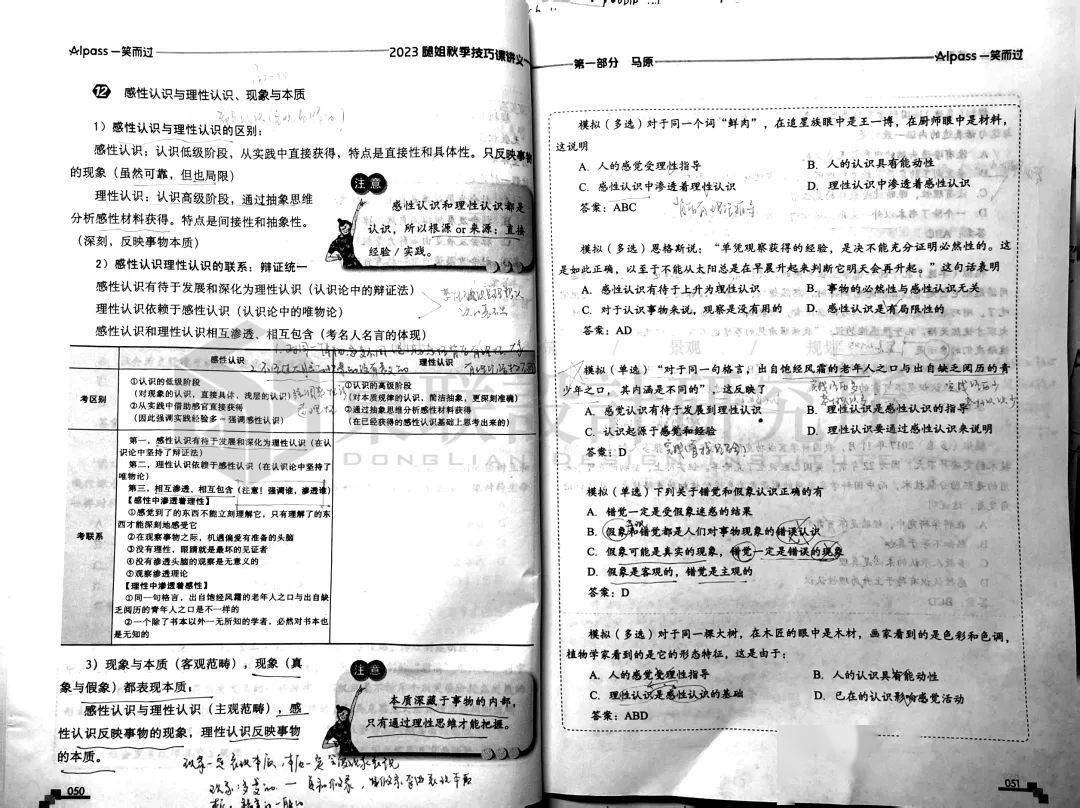 Alpass 一笑而过
2023 腿姐秋季技巧课讲义
12 感性认识与理性认识、现象与本质
1）感性认识与理性认识的区别：
感性认识：认识低级阶段，从实践中直接获得，特点是直接性和具体性。只反映事物
的现象（虽然可靠，但也局限）
理性认识：认识高级阶段，通过抽象思维
分析感性材料获得。特点是间接性和抽象性。
（深刻，反映事物本质）
注意
感性认识和理性认识都是
认识，所以根源 or 来源：直接
经验 / 实践。
2）感性认识理性认识的联系：辩证统一
感性认识有待于发展和深化为理性认识（认识论中的辩证法）
理性认识依赖于感性认识（认识论中的唯物论）
感性认识和理性认识相互渗透、相互包含（考名人名言的体现）
感性认识
理性认识
考区别
①认识的低级阶段
（对现象的认识，直接具体、浅层的认识）
②从实践中借助感官直接获得
（因此强调实践经验多 = 强调感性认识）
①认识的高级阶段
（对本质规律的认识，简洁抽象，更深刻准确）
②通过抽象思维分析感性材料获得
（在已经获得的感性认识基础上思考出来的）
考联系
第一，感性认识有待于发展和深化为理性认识（在认
识论中坚持了辩证法）
第二，理性认识依赖于感性认识（在认识论中坚持了
唯物论）
第三，相互渗透、相互包含（注意！强调谁，渗透谁）
【感性中渗透着理性】
①感觉到了的东西不能立刻理解它，只有理解了的东
西才能深刻地感受它
②在观察事物之际，机遇偏爱有准备的头脑
③没有理性，眼睛就是最坏的见证者
④没有渗透头脑的观察是无意义的
⑤观察渗透理论
【理性中渗透着感性】
①同一句格言，出自饱经风霜的老年人之口与出自缺
乏阅历的青年人之口是不一样的
②一个除了书本以外一无所知的学者，必然对书本也
是无知的
3）现象与本质（客观范畴），现象（真
象与假象）都表现本质；
感性认识与理性认识（主观范畴），感
性认识反映事物的现象，理性认识反映事物
的本质。
注意
本质深藏于事物的内部，
只有通过理性思维才能把握。
050
第一部分 马原
Alpass 一笑而过
模拟（多选）对于同一个词“鲜肉”，在追星族眼中是王一博，在厨师眼中是材料，
这说明
A. 人的感觉受理性指导 B. 人的认识具有能动性
C. 感性认识中渗透着理性认识 D. 理性认识中渗透着感性认识
答案：ABC
模拟（多选）恩格斯说：“单凭观察获得的经验，是决不能充分证明必然性的。这
是如此正确，以至于不能从太阳总是在早晨升起来判断它明天会再升起。”这句话表明
A. 感性认识有待于上升为理性认识 B. 事物的必然性与感性认识无关
C. 对于认识事物来说，观察是没有用的 D. 感性认识是有局限性的
答案：AD
模拟（单选）“对于同一句格言，出自饱经风霜的老年人之口与出自缺乏阅历的青
少年之口，其内涵是不同的”，这反映了
A. 感觉认识有待于发展到理性认识 B. 理性认识是感性认识的指导
C. 认识起源于感觉和经验 D. 理性认识要通过感性认识来说明
答案：D
模拟（单选）下列关于错觉和假象认识正确的有
A. 错觉一定是受假象迷惑的结果
B. 假象和错觉都是人们对事物现象的错误认识
C. 假象可能是真实的现象，错觉一定是错误的现象
D. 假象是客观的，错觉是主观的
答案：D
模拟（多选）对于同一棵大树，在木匠的眼中是木材，画家看到的是色彩和色调，
植物学家看到的是它的形态特征，这是由于：
A. 人的感觉受理性指导 B. 人的认识具有能动性
C. 理性认识是感性认识的基础 D. 已在的认识影响感觉活动
答案：ABD
051